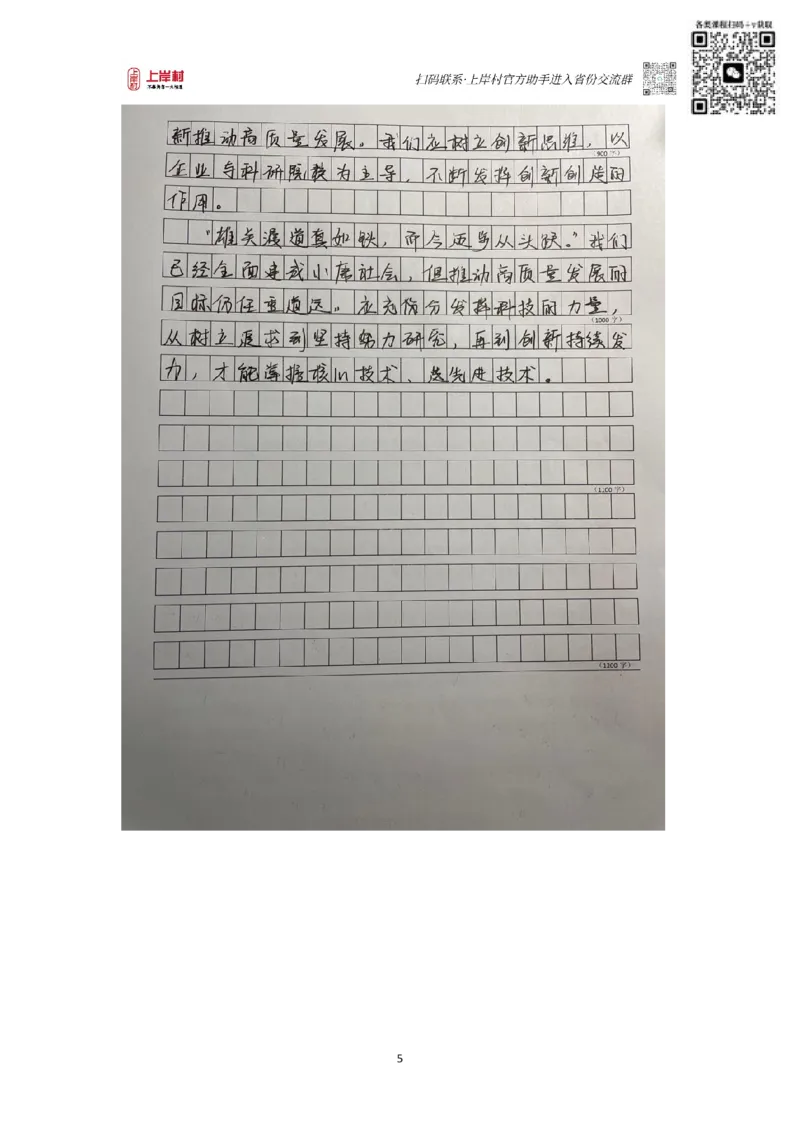 各类课程扫码+v获取
上岸村
扫码联系·上岸村官方助手进入省份交流群
新推动高质量发展。我们应树立创新思维，以
(900 字)
企业与科研院校为主导，不断发挥创新创造的
作用。
“雄关漫道真如铁，而今迈步从头越。”我们
已经全面建成小康社会，但推动高质量发展的
目标仍任重道远。应充份分发挥科技的力量，
(1000 字)
从树立追求到坚持努力研究，再到创新持续发
力，才能掌握核心技术、先进技术。
(1100 字)
(1200 字)
5